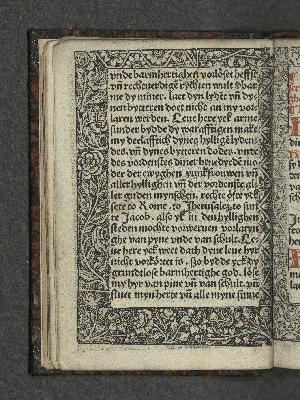 vnde barmhertichen vorlöset heffst
vn̄ rechtuerdige rychten wult vbar
me dy miner. laet dyn lydēt vn̄ dy
nen bytteren doet nicht an my vor
laren werden. Leue here yck arme
sunder bydde dy warafftigen make
my deelafftich dynes hylligē lyden
des. vn̄ dynes bytteren dodes. vnde
des vordenstes diner benedyede mo
der der ewyghen iunckfrouwen vn̄
aller hyllighen vn̄ der vordenste al
ler guden mynschen. rechte oft er yck
sete to Rome. to Jherusalē. to sun
te Jacob. also yk in den hyllighen
steden mochte vorweruen vorlatyn
ghe van pyne vnde van schult. Le
ue here yck weet dath dyne leue byr
nicht vorkortet is. so bydde yck dy
grundelose barmhertighe god. löse
my hyr van pine vn̄ van schult. vn̄
sluet myn herte vn̄ alle myne sinne